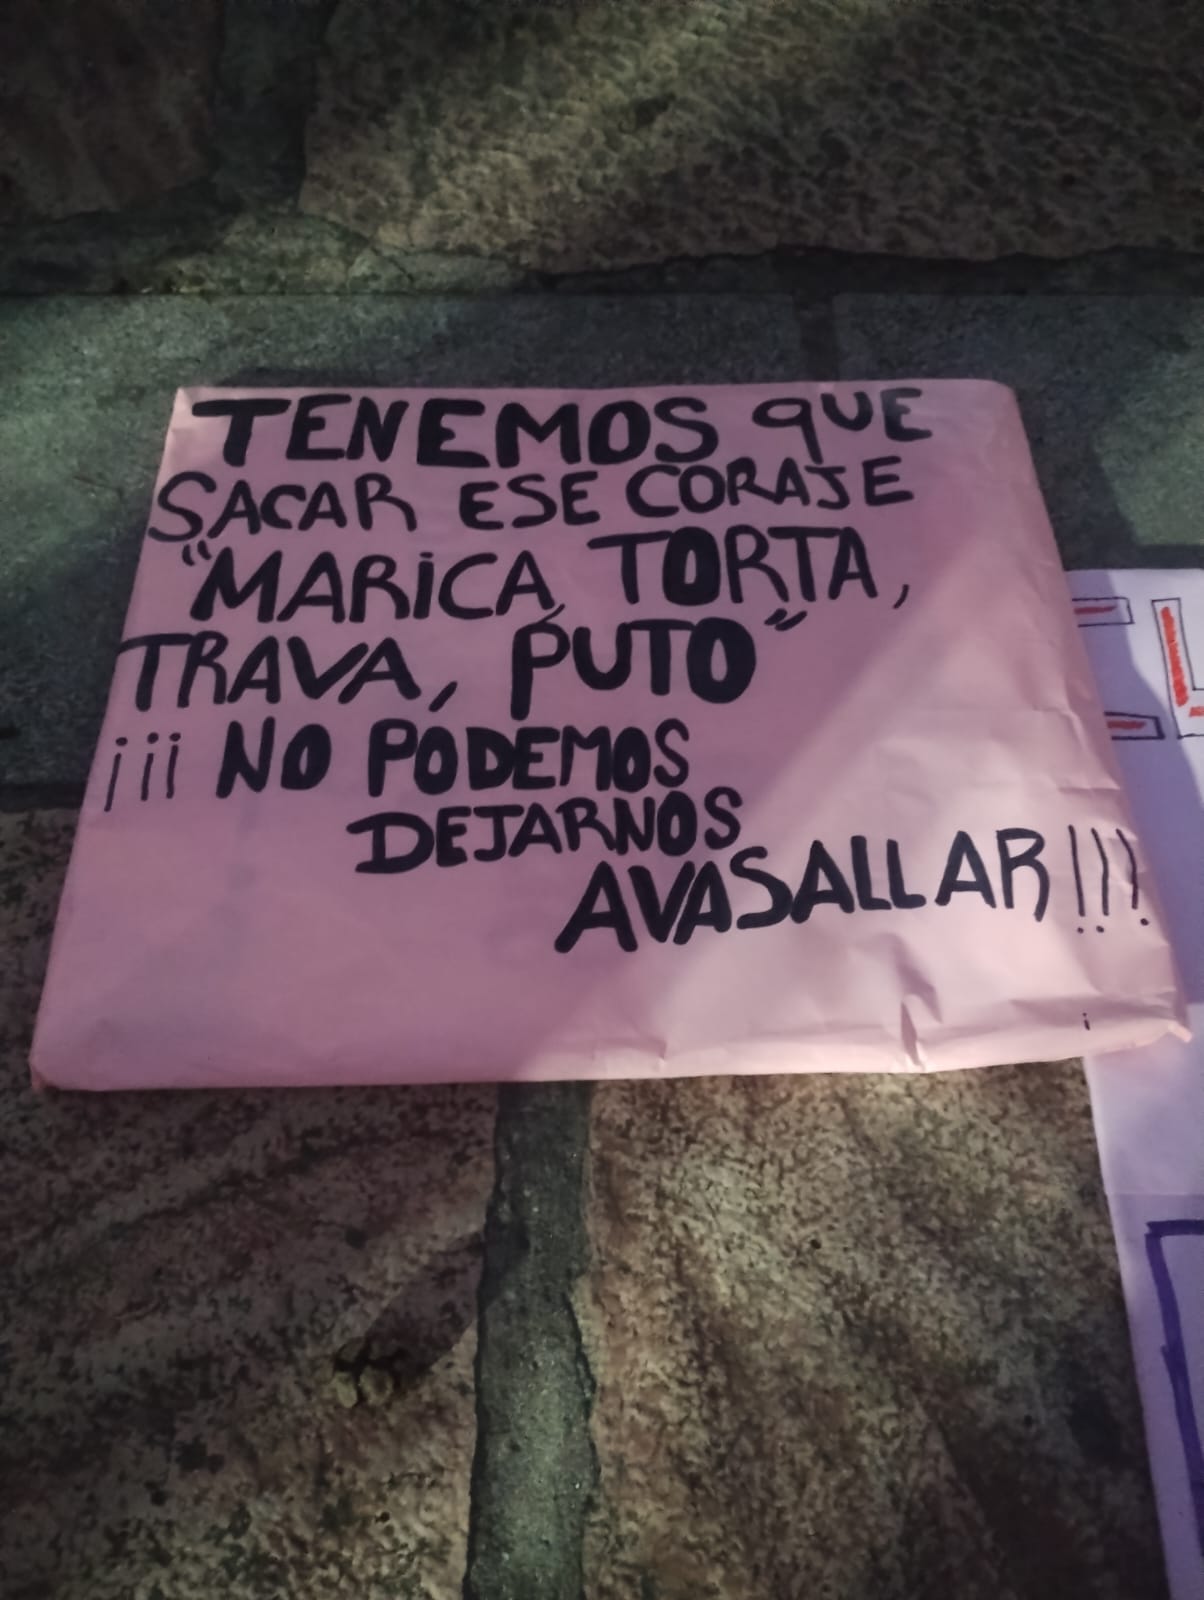 TENEMOS QUE
SACAR ESE CORAJE
"MARICA, TORTA,
TRAVA, PUTO"
¡¡¡ NO PODEMOS
DEJARNOS
AVASALLAR!!!